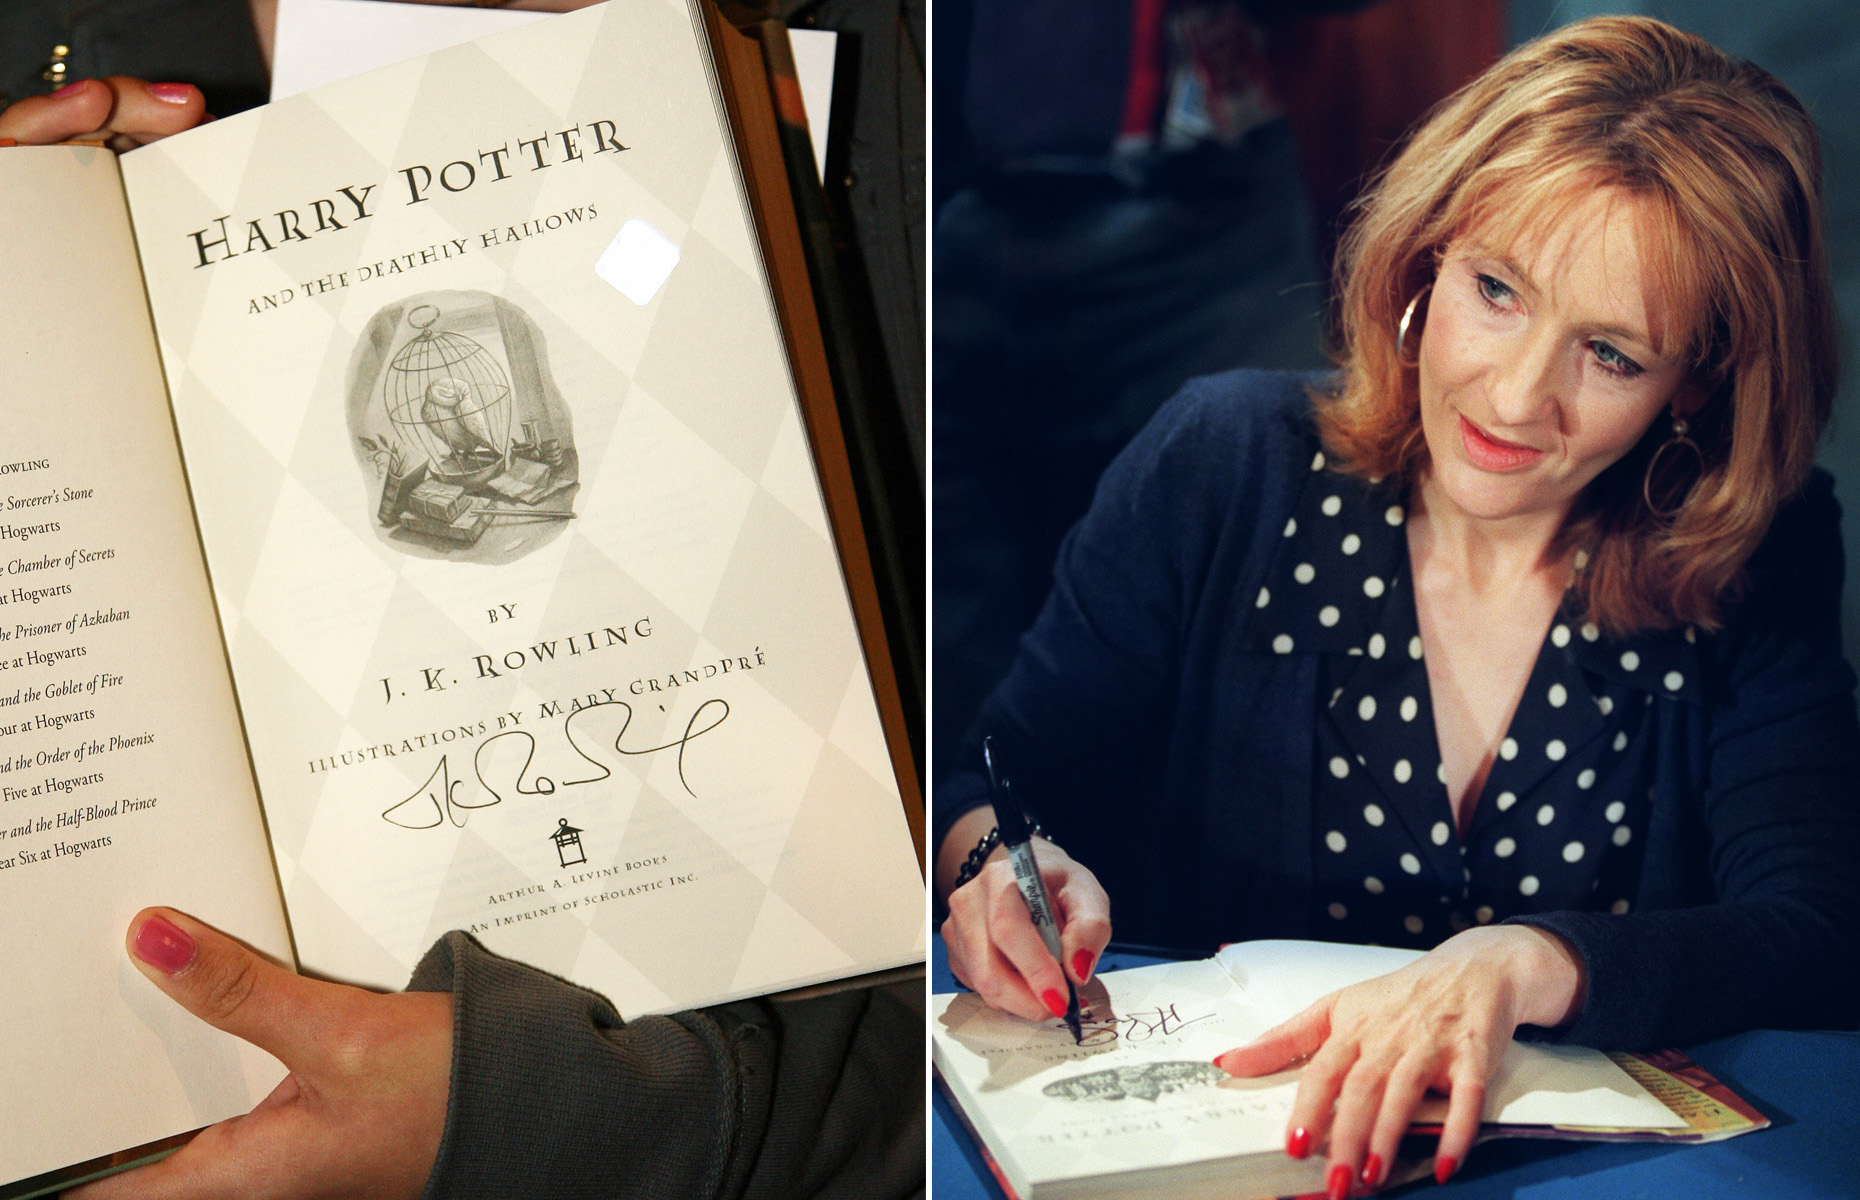 HARRY POTTER
AND THE DEATHLY HALLOWS
BY
J. K. ROWLING
ILLUSTRATIONS BY MARY GRANDPRÉ
ARTHUR A. LEVINE BOOKS
AN IMPRINT OF SCHOLASTIC INC.
OWLING
e Sorcerer's Stone
Hogwarts
e Chamber of Secrets
at Hogwarts
he Prisoner of Azkaban
ee at Hogwarts
and the Goblet of Fire
our at Hogwarts
nd the Order of the Phoenix
Five at Hogwarts
er and the Half-Blood Prince
ear Six at Hogwarts
Sharpie
J. K. ROWLING
HARRY POTTER